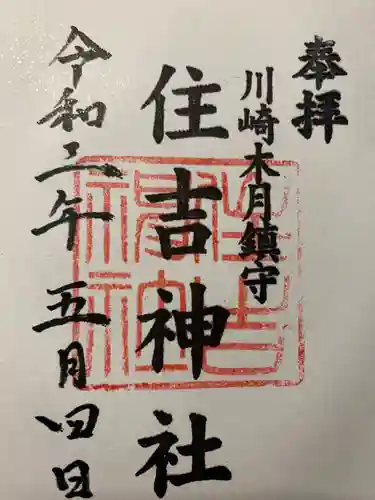 奉拝
川崎木月鎮守
住吉神社
令和二年五月四日